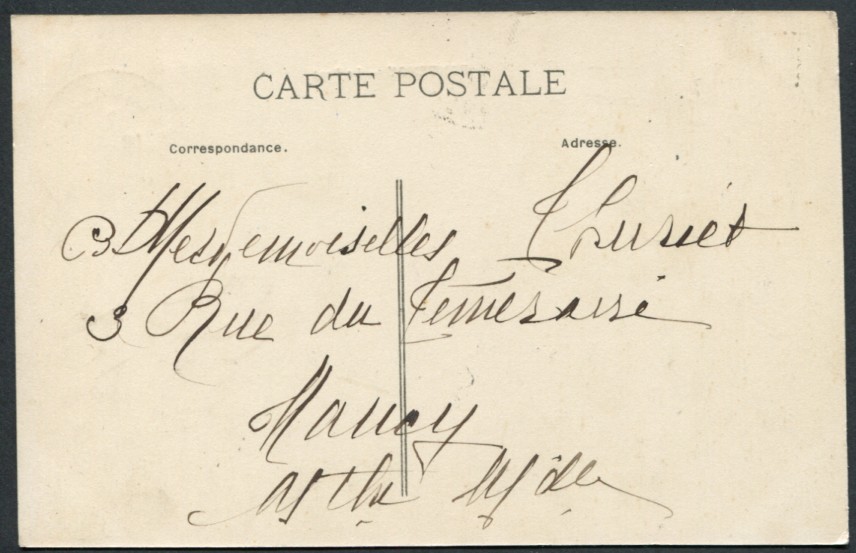 CARTE POSTALE
Correspondance.
Adresse.
Mesdemoiselles Thuriet
3 Rue du Téméraire
Nancy